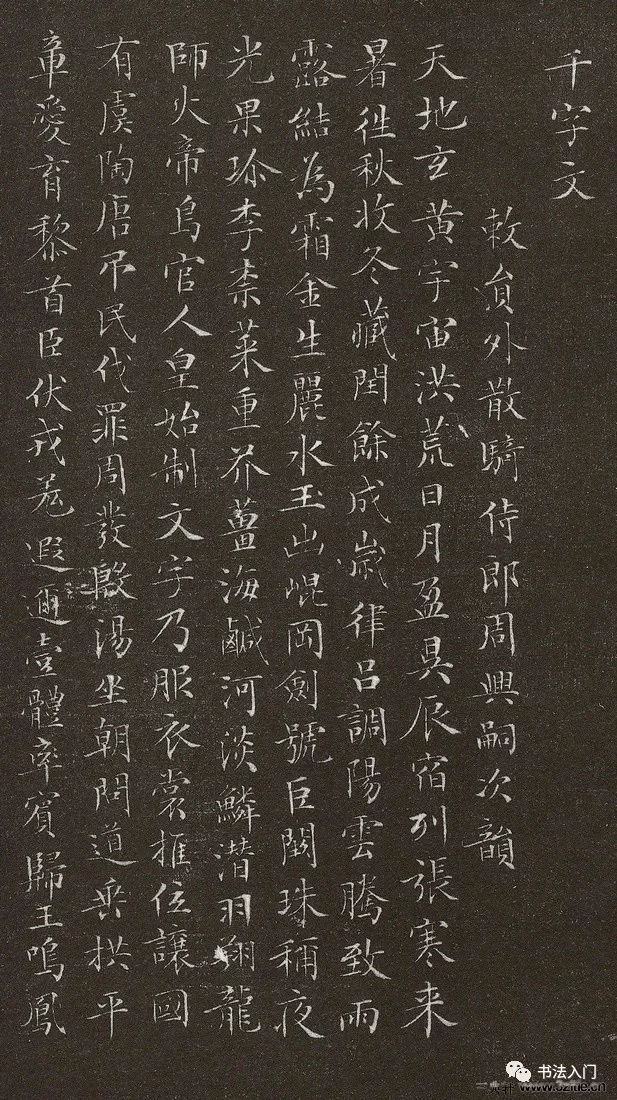 千字文
敕員外散騎侍郎周興嗣次韻
天地玄黄宇宙洪荒日月盈昃辰宿列張寒来
暑徃秋收冬藏閏餘成歲律吕調陽雲騰致雨
露結為霜金生麗水玉出崐岡劍號巨闕珠稱夜
光果珎李柰菜重芥薑海鹹河淡鱗潜羽翔龍
師火帝鳥官人皇始制文字乃服衣裳推位讓國
有虞陶唐吊民伐罪周發殷湯坐朝問道垂拱平
章愛育黎首臣伏戎羌遐邇壹體率賓歸王鳴鳳
书法入门